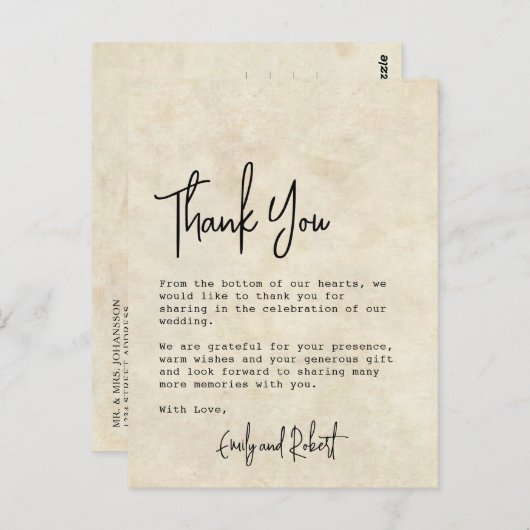 zzle
Thank You
From the bottom of our hearts, we
would like to thank you for
sharing in the celebration of our
wedding.
We are grateful for your presence,
warm wishes and your generous gift
and look forward to sharing many
more memories with you.
With Love,
Emily and Robert
MR. & MRS. JOHANSSON
1234 STREET ADDRESS